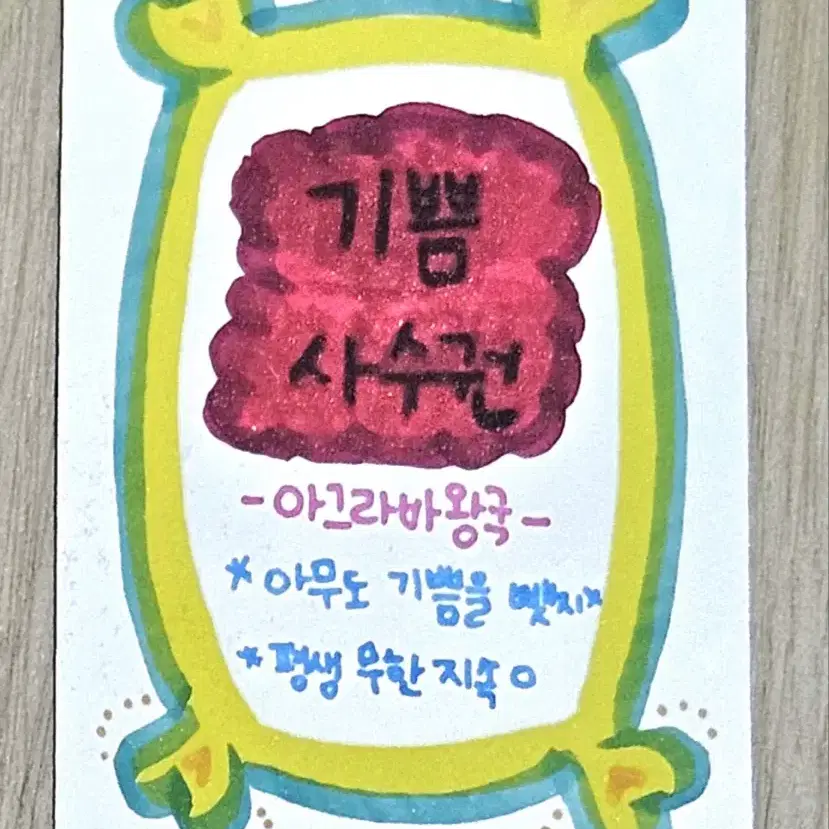 기쁨
사수권
-아그라바왕국-
*아무도 기쁨을 뺏지x
*평생 무한 지속 O